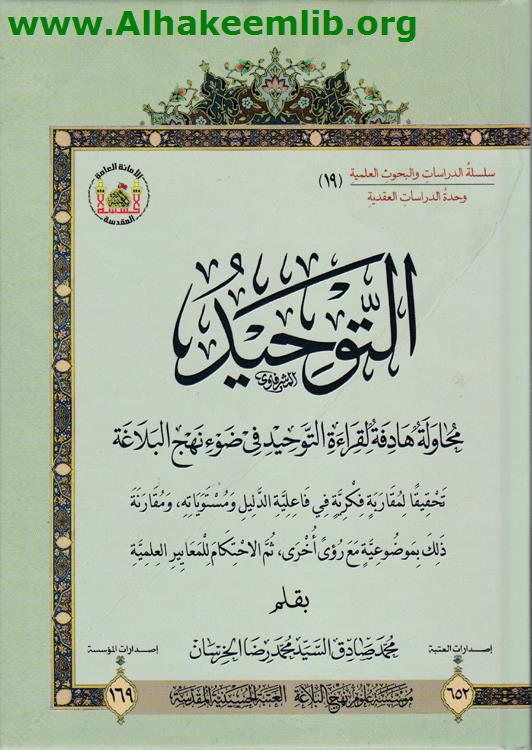 www.Alhakeemlib.org
سلسلة الدراسات والبحوث العلمية (١٩)
وحدة الدراسات العقدية
الأمانة العامة
المقدسة
التَّوحيدُ
مُحاولَةٌ هَادفَةٌ لِقراءةِ التَّوحيدِ في ضَوْءِ نَهْجِ البَلَاغَة
تَحْقيقًا لمُقارَبةٍ فكْريَّةٍ في فَاعليَّة الدَّليل وَمُسْتَوَيَاتِه، وَمُقارَنَة
ذَلكَ بمَوضُوعيَّةٍ مَعَ رُؤىً أُخْرَى، ثُمَّ الاحْتكَام للمَعَايير العِلميَّة
بقلم
محمد صادق السيد محمد رضا الخرسان
إصدارات العتبة
إصدارات المؤسسة
٦٥٢
مؤسسة علوم نهج البلاغة العتبة الحسينية المقدسة
١٦٩